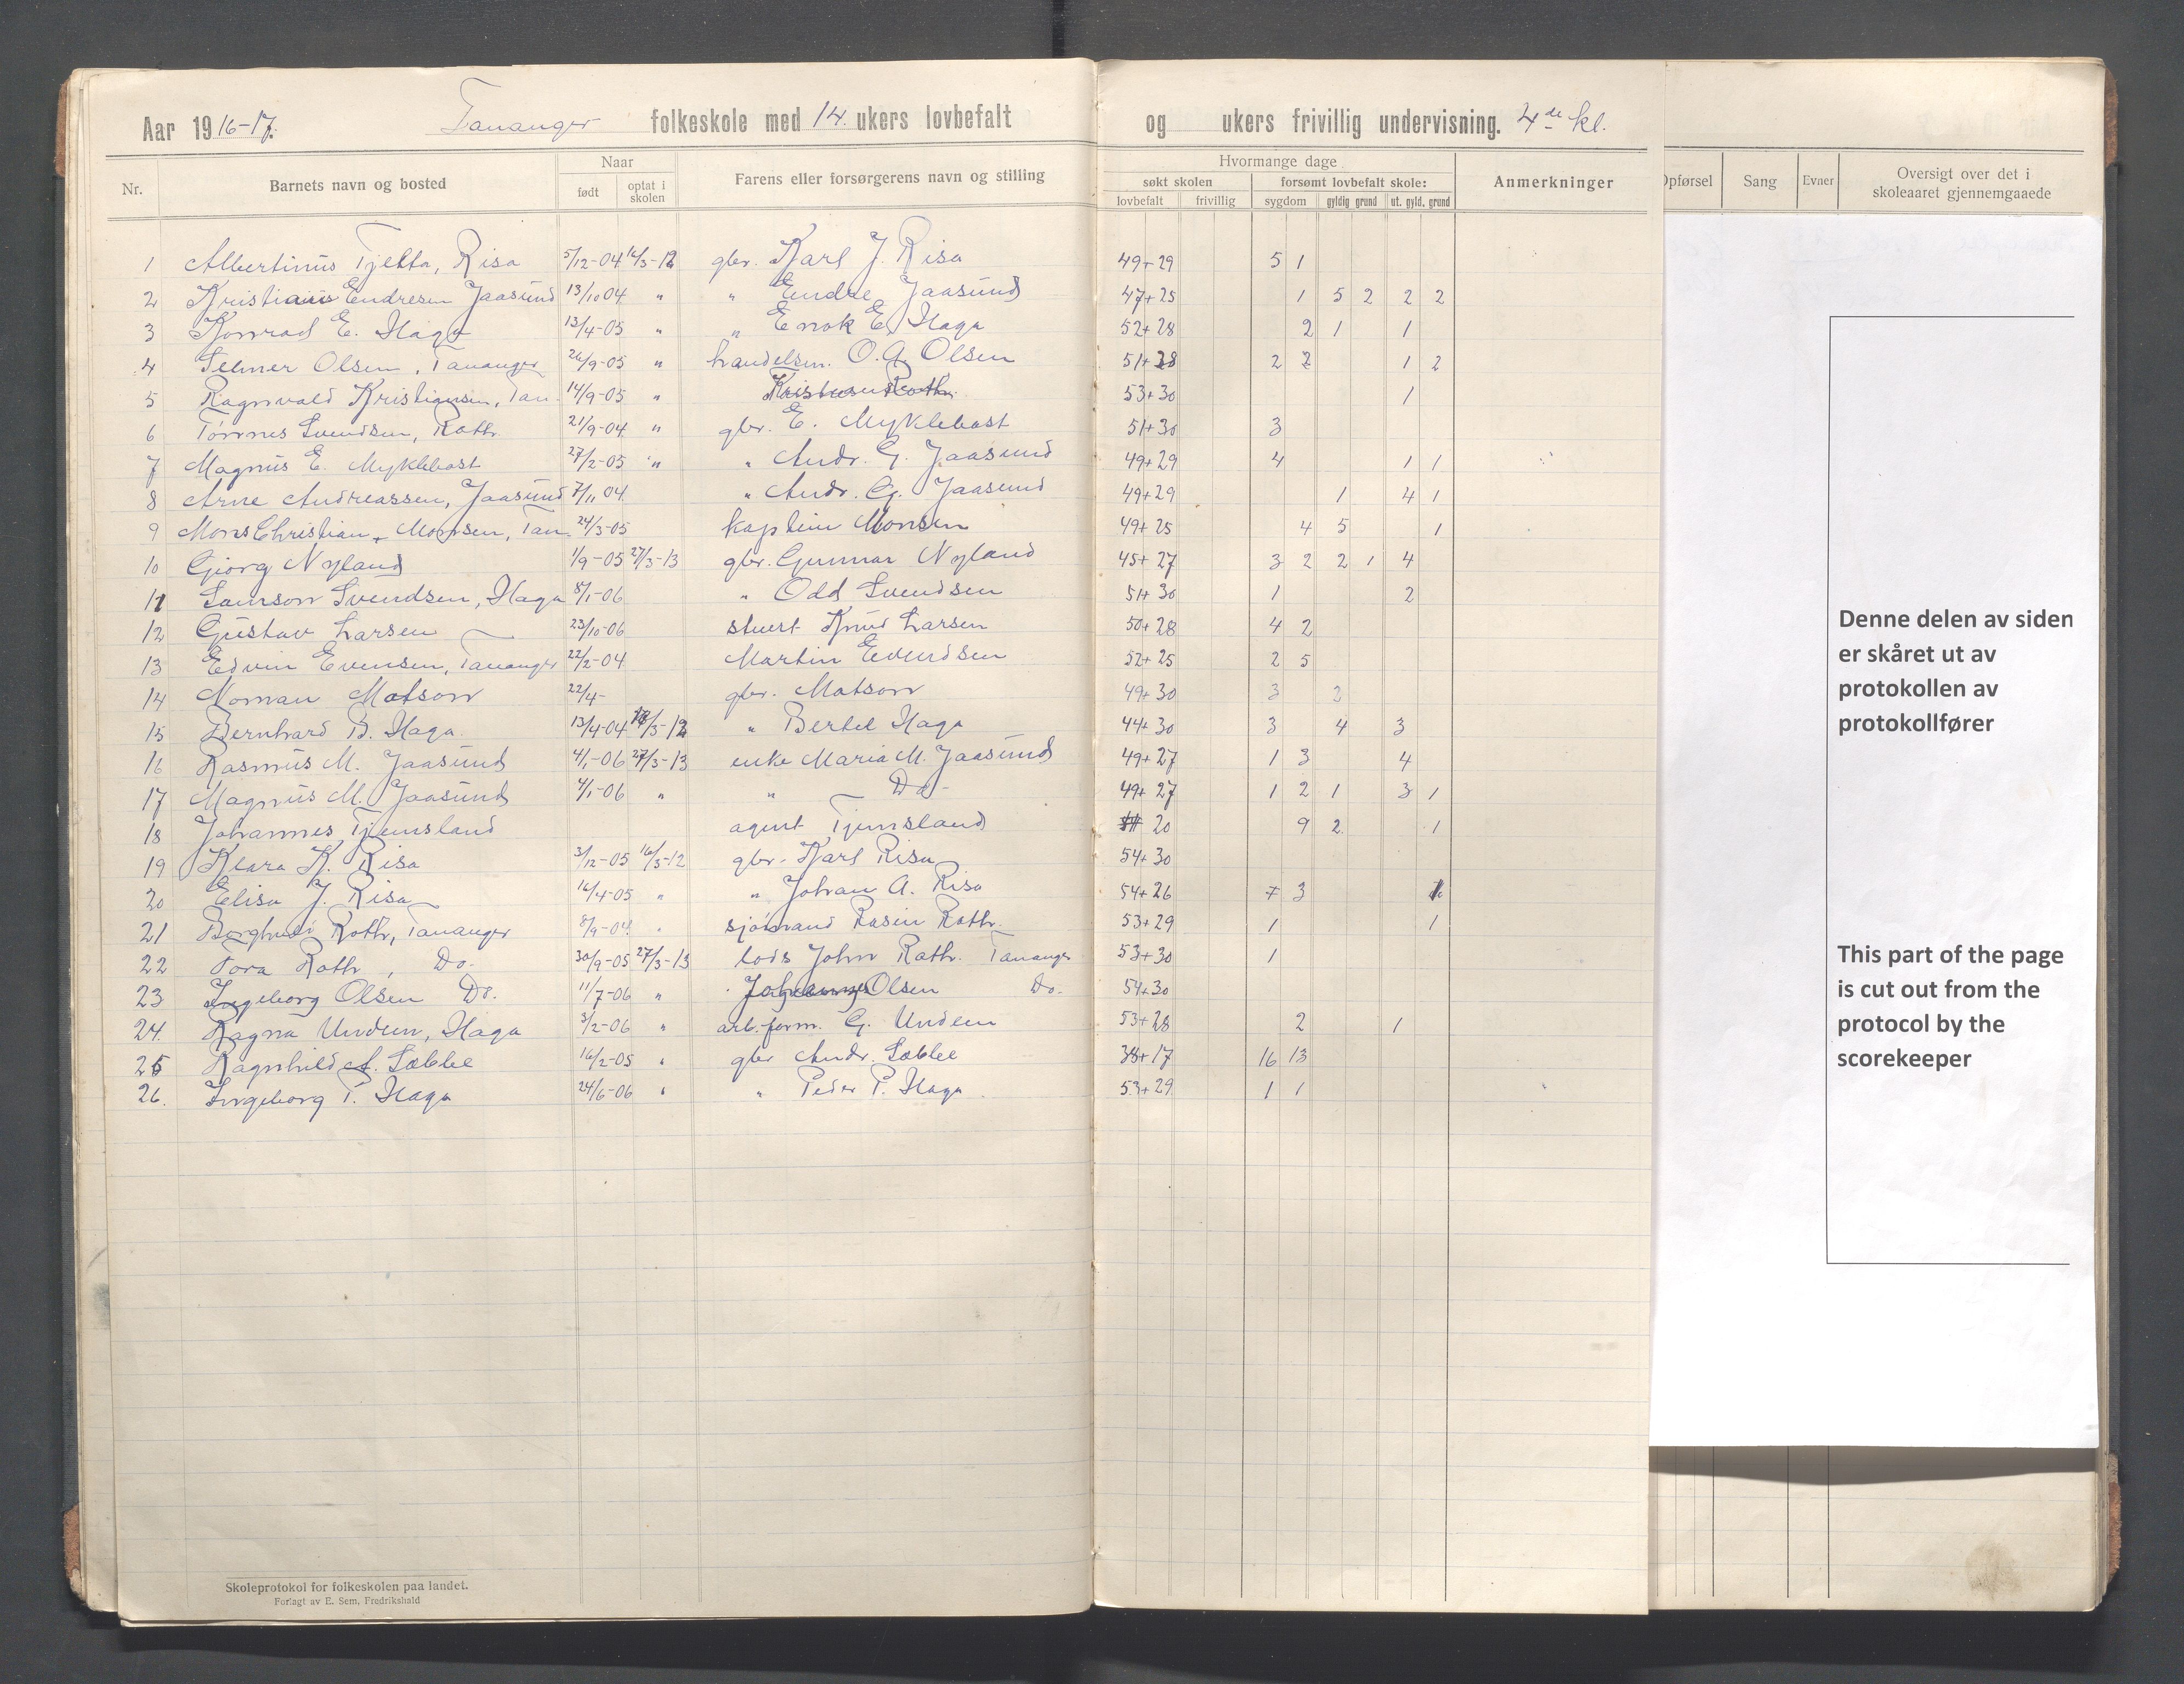 Aar 1916-17. Tananger folkeskole med 14. ukers lovbefalt og ukers frivillig undervisning. 4de kl.
Nr. Barnets navn og bosted Naar født optat i skolen Farens eller forsørgerens navn og stilling Hvormange dage søkt skolen lovbefalt frivillig forsømt lovbefalt skole: sygdom gyldig grund ut. gyld. grund Anmerkninger Opførsel Sang Evner Oversigt over det i skoleaaret gjennemgaaede
1 Albertinus Tjelta, Risa 5/12-04 16/3-12 gbr. Karl J. Risa 49+29 5 1
2 Kristianus Endresen Jaasund 13/10 04 " " Endre Jaasund 47+25 1 5 2 2 2
3 Konrad E. Haga 13/4-05 " " Enok E. Haga 52+28 2 1 1
4 Selmer Olsen, Tananger 26/9-05 " handelsm. O. G. Olsen 51+28 2 2 1 2
5 Ragnvald Kristiansen, Tan 14/9-05 " 53+30 1
6 Tønnes Svendsen, Roth 21/9-04 " gbr. E. Myklebost 51+30 3
7 Magnus E. Myklebost 27/2-05 " " Andr. G. Jaasund 49+29 4 1 1
8 Arne Andreassen, Jaasund 7/11 04 " Andr. G. Jaasund 49+29 1 4 1
9 Mons Christian Monsen, Tan 24/3-05 kaptein Monsen 49+25 4 5 1
10 Georg Nyland 1/9-05 27/3-13 gbr. Gunnar Nyland 45+27 3 2 2 1 4
11 Samson Svendsen, Haga 8/1-06 " Odd Svendsen 51+30 1 2
12 Gustav Larsen 23/10-06 stuert Knud Larsen 50+28 4 2
13 Edvin Evensen, Tananger 22/2-04 Martin Evendsen 52+25 2 5
14 Noman Matson 22/4- gbr. Matson 49+30 3 2
15 Bernhard B. Haga. 13/4-04 /3-12 " Bertel Haga 44+30 3 4 3
16 Rasmus M. Jaasund 4/1-06 27/3-13 enke Maria M. Jaasund 49+27 1 3 4
17 Magnus M. Jaasund 4/1-06 " " Do- 49+27 1 2 1 3 1
18 Johannes Tjemsland agent Tjemsland 20 9 2 1
19 Klara K. Risa 3/12-05 16/3-12 gbr. Karl Risa 54+30
20 Elisa J. Risa 16/4-05 " " Johan A. Risa 54+26 7 3
21 Borghild Roth, Tananger 8/9-04 " sjømand Rasin Roth. 53+29 1 1
22 Tora Roth, Do- 30/9-05 27/3-13 lods John Roth. Tananger 53+30 1
23 Ingeborg Olsen Do. 11/7-06 " Olsen Do- 54+30
24. Ragna Undem, Haga 3/2-06 " arb.form. G. Undem 53+28 2 1
25 Ragnhild A. Sæblee 16/2-05 " gbr Andr. Sæblee 38+17 16 13
26. Ingeborg P. Haga 24/6-06 " " Peder P. Haga 53+29 1 1
Denne delen av siden
er skåret ut av
protokollen av
protokollfører
This part of the page
is cut out from the
protocol by the
scorekeeper
Skoleprotokol for folkeskolen paa landet.
Forlagt av E. Sem, Fredrikshald